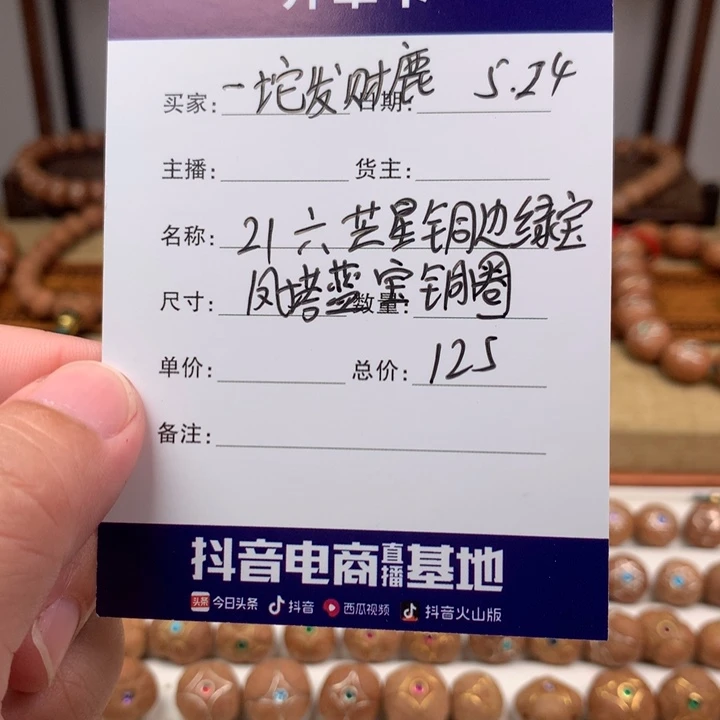 买家: 一坨发财鹿 日期: 5.24
主播: 货主:
名称: 21六芒星铜边绿宝
尺寸: 凤塔蓝宝铜圈 数量:
单价: 总价: 125
备注:
抖音电商直播基地
头条 今日头条 抖音 西瓜视频 抖音火山版